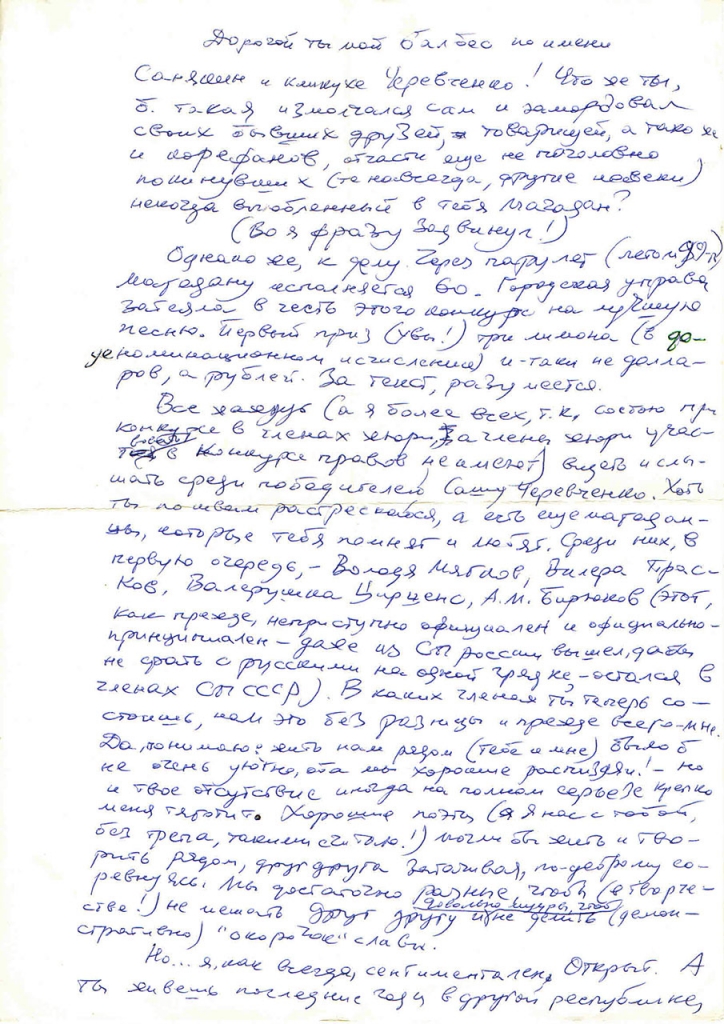 Дорогой ты мой балбес по имени
Саняшин и кликухе Черевченко! Что же ты,
б. такая измолчался сам и замордовал
своих бывших друзей, товарищей, а также
и корефанов, отчасти еще не поголовно
покинувших (те навсегда, другие навеки)
некогда влюбленный в тебя Магадан?
(Во я фразу задвинул!)
Однако же, к делу. Через пару лет (летом 99-го)
Магадану исполняется 60. Городская управа
затеяла в честь этого конкурс на лучшую
песню. Первый приз (увы!) три лимона (в до-
деноминационном исчислении) и-таки не долла-
ров, а рублей. За текст, разумеется.
Все жаждут (а я более всех, т.к. состою при
конкурсе в членах жюри, а члены жюри учас-
твовать в конкурсе правов не имеют) видеть и слы-
шать среди победителей Сашу Черевченко. Хоть
ты по швам растрескайся, а есть еще магадан-
цы, которые тебя помнят и любят. Среди них, в
первую очередь, - Володя Мягков, Вилера Прас-
ков, Валерушка Цирценс, А.М. Бирюков (этот,
как прежде, неприступно официален и официально-
принципиален - даже из СП России вышел, дабы
не срать с русскими на одной грядке, - остался в
членах СП СССР). В каких членах ты теперь со-
стоишь, нам это без разницы и прежде всего - мне.
Да, понимаю: жить нам рядом (тебе и мне) было б
не очень уютно, оба мы хорошие распиздяи! - но
и твое отсутствие иногда на полном серьезе крепко
меня тяготит. Хорошие поэты (а я нас с тобой,
без трепа, такими считаю!) могли бы жить и тво-
рить рядом, друг друга затачивая, по-доброму со-
ревнуясь. Мы достаточно разные чтобы (в творче-
стве!) не мешать друг другу и довольно мудры, чтоб не делить (демон-
стративно) "окорочок" славы.
Но... я, как всегда, сентиментален. Открыт. А
ты живешь последние годы в другой республике,